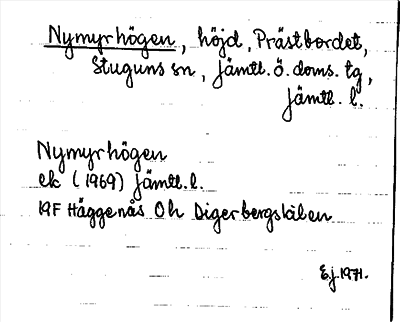 Nymyrhögen, höjd, Prästbordet,
Stuguns sn, Jämtl. ö. doms. tg,
Jämtl. l.
Nymyrhögen
ek (1969) Jämtl. l.
19F Häggenås 0h Digerbergskälen
E.j. 1971.